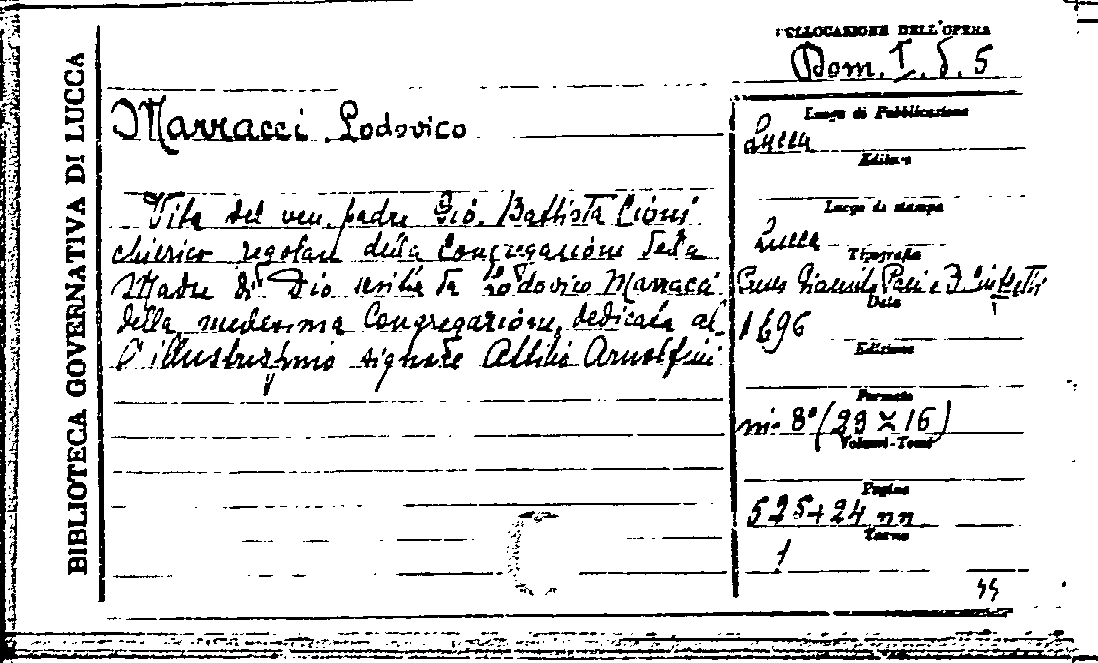 BIBLIOTECA GOVERNATIVA DI LUCCA
COLLOCAZIONE DELL'OPERA
Dom. I. δ. 5
Marracci Lodovico
Vita del ven. padre Gio. Battista Cioni
chierico regolare della Congregazione della
Madre di Dio scritta da Lodovico Marracci
della medesima Congregazione, dedicata al
l'illustrissimo signore Attilio Arnolfini
Luogo di Pubblicazione
Lucca
Editore
Luogo di stampa
Lucca
Tipografia
Press Giacinto Paci e D.
Data
1696
Edizione
Formato
in 8° (23 X 16)
Volumi-Tomi
Pagine
525+24 nn
Tavole
1